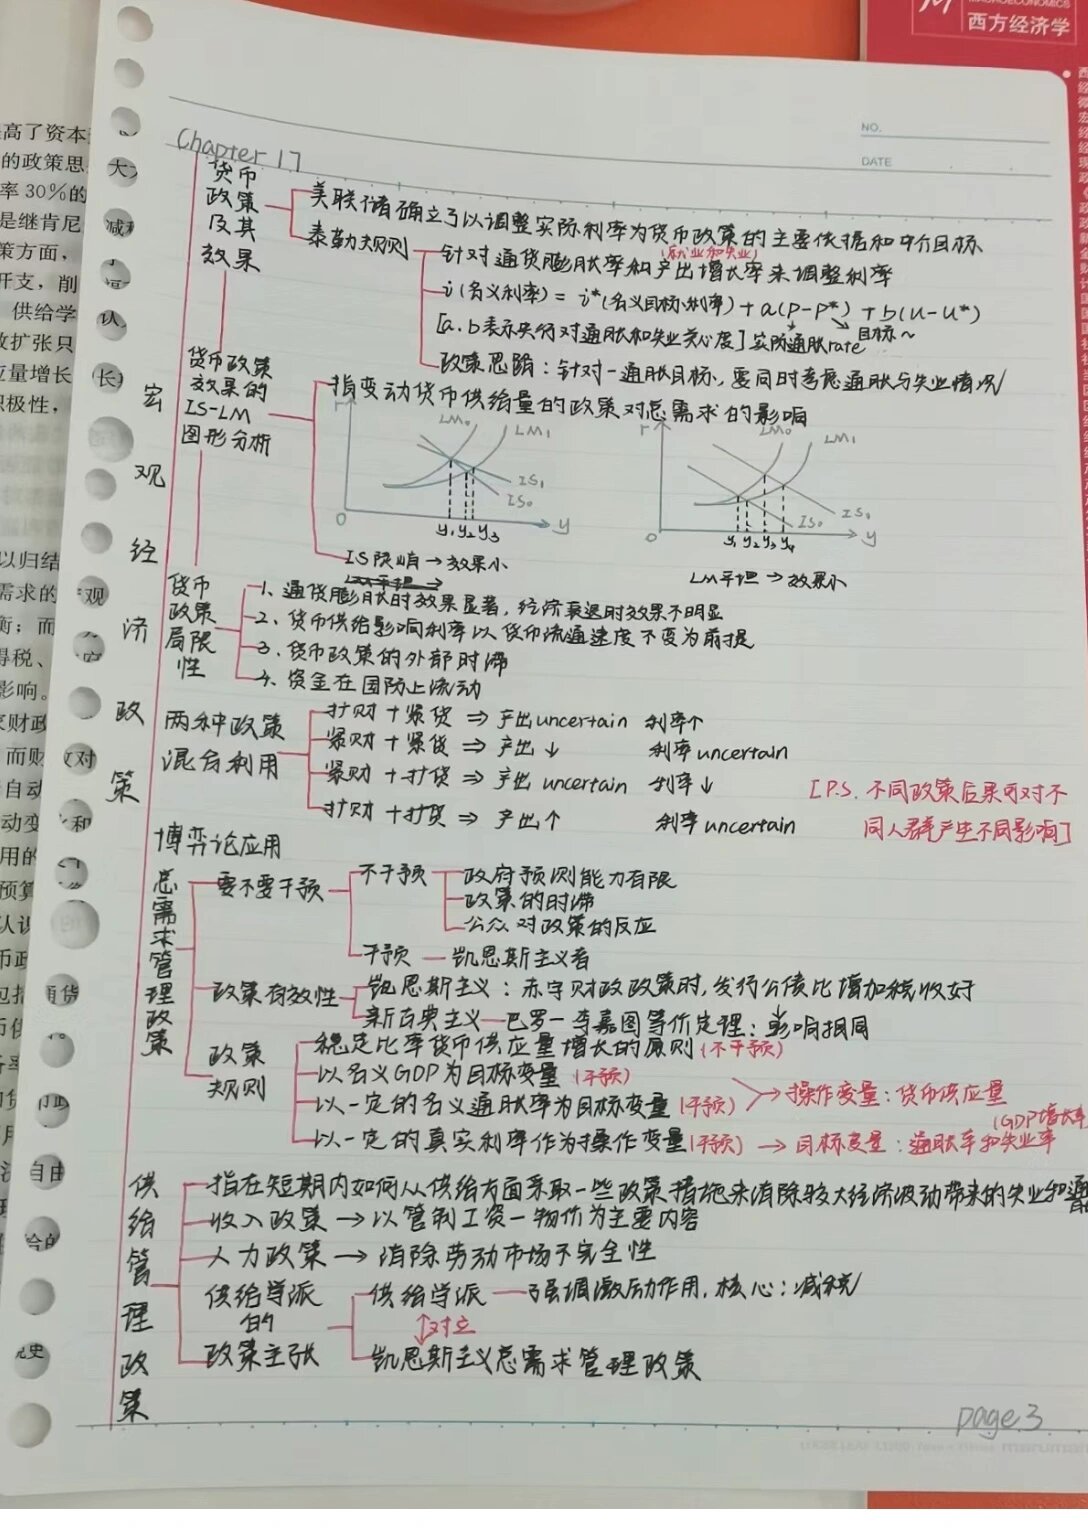 MACROECONOMICS
西方经济学
NO.
DATE
Chapter 17
宏观经济政策
货币政策及其效果
美联储确立了以调整实际利率为货币政策的主要依据和中介目标
泰勒规则
(就业和失业)
针对通货膨胀率和产出增长率来调整利率
i(名义利率) = i*(名义目标利率) + a(P-P*) + b(u-u*)
[a.b表示央行对通胀和失业关心度] 实际通胀rate 目标~
政策思路:针对一通胀目标,要同时考虑通胀与失业情况
货币政策效果的IS-LM图形分析
指变动货币供给量的政策对总需求的影响
r LM₀ LM₁ IS₁ IS₀
0 y₁ y₂ y₃ y
r LM₀ LM₁ IS₁ IS₀
0 y₁ y₂ y₃ y₄ y
IS陡峭→效果小
LM平坦→
LM平坦→效果小
货币政策局限性
1、通货膨胀时效果显著,经济衰退时效果不明显
2、货币供给影响利率以货币流通速度不变为前提
3、货币政策的外部时滞
4、资金在国际上流动
两种政策混合利用
扩财+紧货⇒产出uncertain 利率↑
紧财+紧货⇒产出↓ 利率uncertain
紧财+扩货⇒产出uncertain 利率↓
扩财+扩货⇒产出↑ 利率uncertain
[P.S. 不同政策后果可对不
同人群产生不同影响]
博弈论应用
总需求管理政策
要不要干预
不干预
政府预测能力有限
政策的时滞
公众对政策的反应
干预 — 凯恩斯主义者
政策有效性
凯恩斯主义:赤字财政政策时,发行公债比增加税收好
新古典主义—巴罗-李嘉图等价定理:影响相同
政策规则
稳定比率货币供应量增长的原则(不干预)
以名义GDP为目标变量(干预)
以一定的名义通胀率为目标变量(干预)
→操作变量:货币供应量
以一定的真实利率作为操作变量(干预)→目标变量:通胀率和失业率
(GDP增长率
供给管理政策
指在短期内如何从供给方面采取一些政策措施来消除较大经济波动带来的失业和通
收入政策→以管制工资-物价为主要内容
人力政策→消除劳动市场不完全性
供给学派的政策主张
供给学派—强调激励作用,核心:减税
↕对立
凯恩斯主义总需求管理政策
page.3